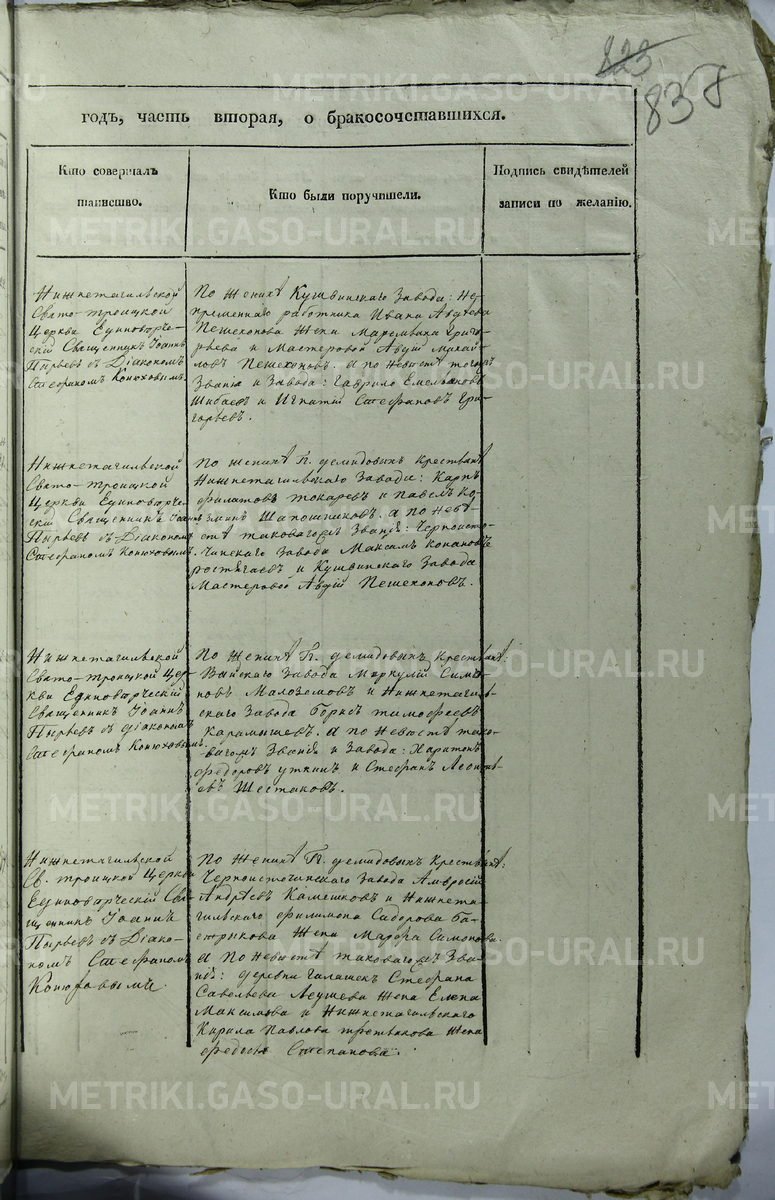 823
838
годъ, часть вторая, о бракосочетавшихся.
Кто совершалъ таинство.
Кто были поручители.
Подпись свидѣтелей записи по желанію.
Нижнетагильской
Свято-троицкой
Церкви Единовѣрче-
скій Священникъ Іоаннъ
Пырьевъ съ Діакономъ
Стефаномъ Конюховымъ.
По женихѣ Кушвинскаго Завода: Не-
премѣннаго работника Ивана Авдѣева
Пешехонова Жена Маремьяна Григо-
рьева и Мастеровой Авдій Михай-
ловъ Пешехоновъ. а по Невѣстѣ тогожъ
Званія и Завода: Гаврило Емельяновъ
Шибаевъ и Игнатій Стефановъ Гри-
горьевъ.
Нижнетагильской
Свято-троицкой
Церкви Единовѣрче-
скій Священникъ Іоаннъ
Пырьевъ съ Діакономъ
Стефаномъ Конюховымъ.
По женихѣ Гг. демидовыхъ Крестьянѣ
Нижнетагильскаго Завода: Карпъ
филатовъ токаревъ и Павелъ Ко-
зминъ Шапошниковъ. а по Невѣ-
стѣ таковагожъ Званія: Черноисто-
чинскаго Завода Максимъ
и Кушвинскаго Завода
Мастеровой Авдій Пешехоновъ.
Нижнетагильской
Свято-троицкой Цер-
кви Единовѣрческій
Священникъ Іоаннъ
Пырьевъ съ діакономъ
Стефаномъ Конюховымъ.
По Женихѣ Гг. демидовыхъ Крестьянѣ:
Выйскаго Завода Меркулій Симо-
новъ Малоземовъ и Нижнетагиль-
скаго Завода Борисъ тимофеевъ
Карамышевъ. а по Невѣстѣ тако-
вагожъ Званія и Завода: Харитонъ
федоровъ уткинъ и Стефанъ Леонтье-
въ Шестаковъ.
Нижнетагильской
Св. троицкой Церкви
Единовѣрческій Свя-
щенникъ Іоаннъ
Пырьевъ съ Діако-
номъ Стефаномъ
Конюховымъ.
По Женихѣ Гг. демидовыхъ Крестьянѣ:
Черноисточинскаго Завода Амвросій
Андреевъ Камешковъ и Нижнета-
гильскаго филимона Сидорова Ба-
стрикова Жена Марфа Симонова.
а По Невѣстѣ таковагожъ Зва-
нія: деревни галашекъ Стефана
Савельева Жена Елена
Максимова и Нижнетагильскаго
Кирила Павлова третьякова Жена
федосья Степанова.
METRIKI.GASO-URAL.RU